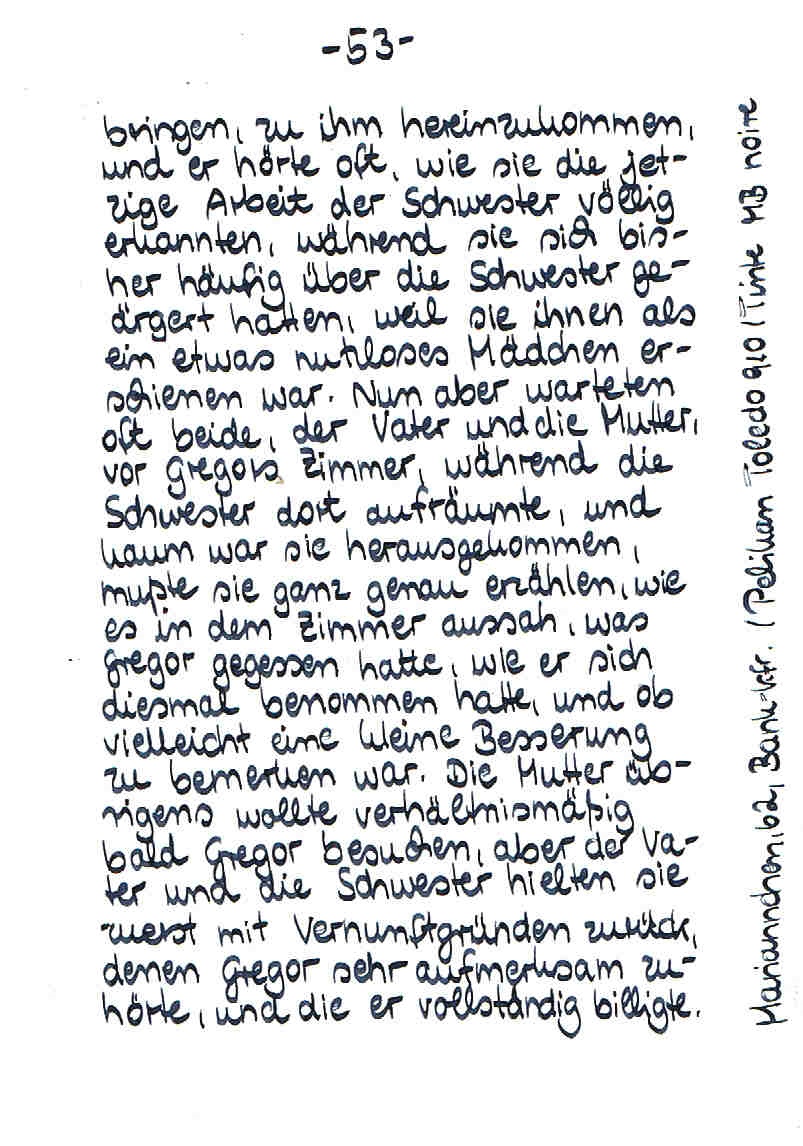 -53-
bringen, zu ihm hereinzukommen,
und er hörte oft, wie sie die jet-
zige Arbeit der Schwester völlig
erkannten, während sie sich bis-
her häufig über die Schwester ge-
ärgert hatten, weil sie ihnen als
ein etwas nutzloses Mädchen er-
schienen war. Nun aber warteten
oft beide, der Vater und die Mutter,
vor Gregors Zimmer, während die
Schwester dort aufräumte, und
kaum war sie herausgekommen,
mußte sie ganz genau erzählen, wie
es in dem Zimmer aussah, was
Gregor gegessen hatte, wie er sich
diesmal benommen hatte, und ob
vielleicht eine kleine Besserung
zu bemerken war. Die Mutter üb-
rigens wollte verhältnismäßig
bald Gregor besuchen, aber der Va-
ter und die Schwester hielten sie
zuerst mit Vernunftgründen zurück,
denen Gregor sehr aufmerksam zu-
hörte, und die er vollständig billigte.
Mariannchen, 62, Bank-Kfr. (Pelikan Toledo 910 / Tinte MB noire